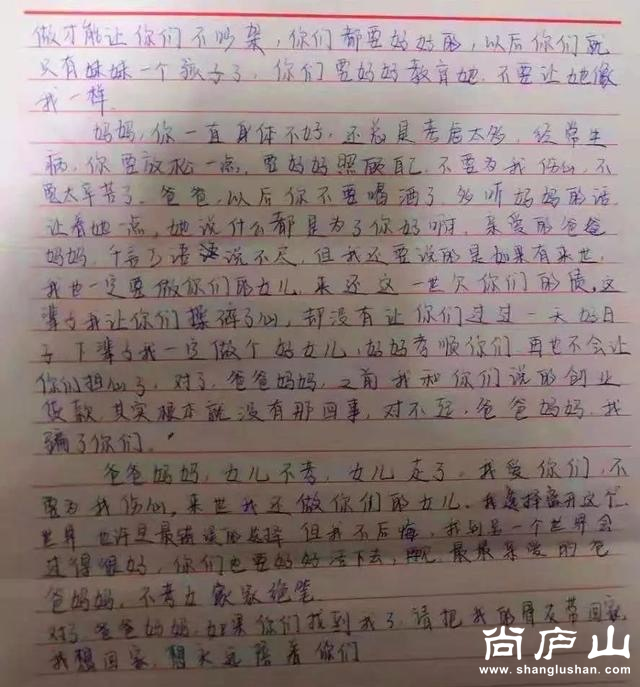 做才能让你们不吵架,你们都要好好的,以后你们就
只有妹妹一个孩子了,你们要好好教育她.不要让她像
我一样.
妈妈,你一直身体不好,还总是考虑太多,经常生
病,你要放松一点,要好好照顾自己.不要为我伤心,不
要太辛苦了.爸爸,以后你不要喝酒了,多听妈妈的话,
让着她一点,她说什么都是为了你好呀.亲爱的爸爸
妈妈,千言万语说不尽,但我还要说的是如果有来世,
我也一定要做你们的女儿.来还这一世欠你们的债,这
辈子我让你们操碎了心,却没有让你们过过一天好日
子,下辈子我一定做个好女儿,好好孝顺你们.再也不会让
你们担心了.对了,爸爸妈妈,之前我和你们说的创业
贷款,其实根本就没有那回事,对不起,爸爸妈妈.我
骗了你们.
爸爸妈妈,女儿不孝,女儿走了.我爱你们,不
要为我伤心.来世我还做你们的女儿.我选择离开这个
世界 也许是最错误的选择 但我不后悔,我到另一个世界会
过得很好,你们也要好好活下去,最最亲爱的爸
爸妈妈,不孝女 家家绝笔
对了,爸爸妈妈,如果你们找到我了,请把我的骨灰带回家
我想回家,想永远陪着你们
尚庐山
www.shanglushan.com